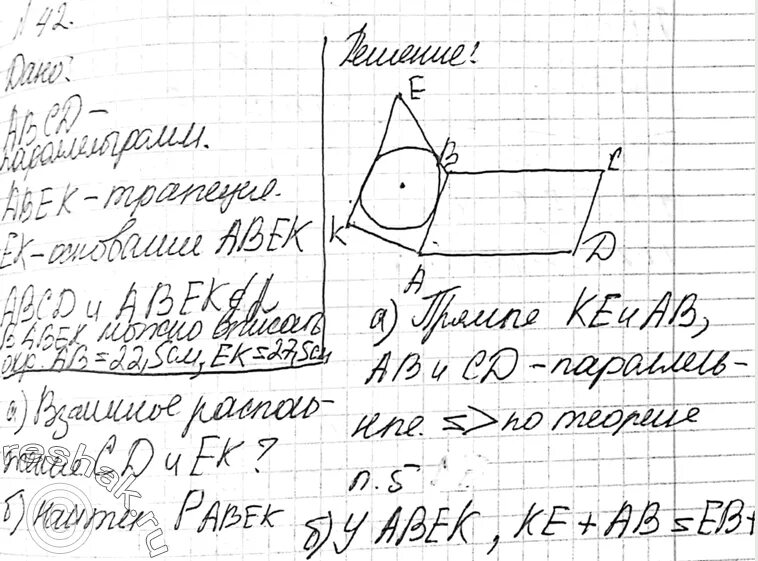 № 42.
Дано:
ABCD –
параллелограмм.
ABEK – трапеция.
EK – основание ABEK
ABCD и ABEK ∉ α
В ABEK можно вписать
окр. AB = 22,5см, EK = 27,5см
а) Взаимное располо-
жение CD и EK?
б) найти P ABEK
Решение:
E
B
C
K
A
D
а) Прямые KE и AB,
AB и CD – параллель-
ные. => по теореме
п. 5
б) У ABEK, KE + AB = EB +
reshak.ru